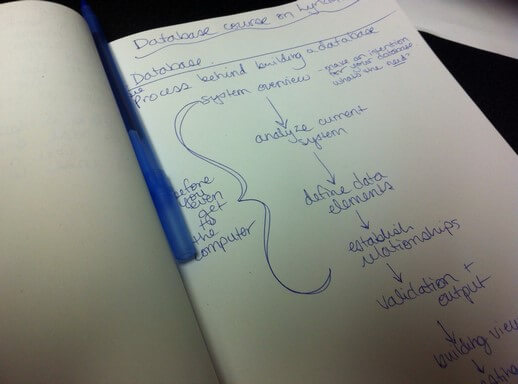 Database course on
Database
The
Process behind building a database
System overview - make an intention
for your database
what's the need?
analyze current
system
define data
elements
before
you
even
get
to
the
computer
establish
relationships
validation +
output
building